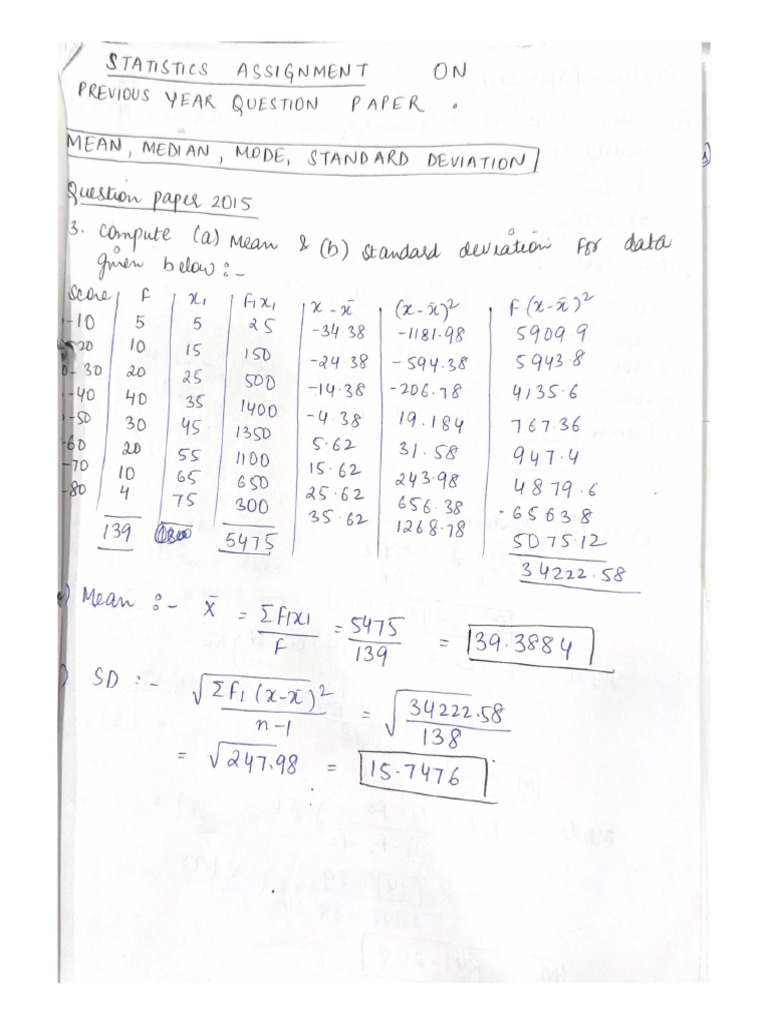 STATISTICS ASSIGNMENT ON
PREVIOUS YEAR QUESTION PAPER.
MEAN, MEDIAN, MODE, STANDARD DEVIATION
Question paper 2015
3. Compute (a) Mean & (b) standard deviation for data
given below :-
Score F x₁ F₁x₁ x - x̄ (x-x̄)² F(x-x̄)²
-10 5 5 25 -34.38 -1181.98 5909 9
20 10 15 150 -24.38 -594.38 5943.8
0-30 20 25 500 -14.38 -206.78 4135.6
-40 40 35 1400 -4.38 19.184 767.36
-50 30 45 1350 5.62 31.58 947.4
-60 20 55 1100 15.62 243.98 4879.6
-70 10 65 650 25.62 656.38 6563.8
-80 4 75 300 35.62 1268.78 5075.12
139 5475 34222.58
) Mean :- x̄ = Σf₁x₁ / F = 5475 / 139 = 39.3884
) SD :- √Σf₁(x-x̄)² / n-1 = √34222.58 / 138
= √247.98 = 15.7476